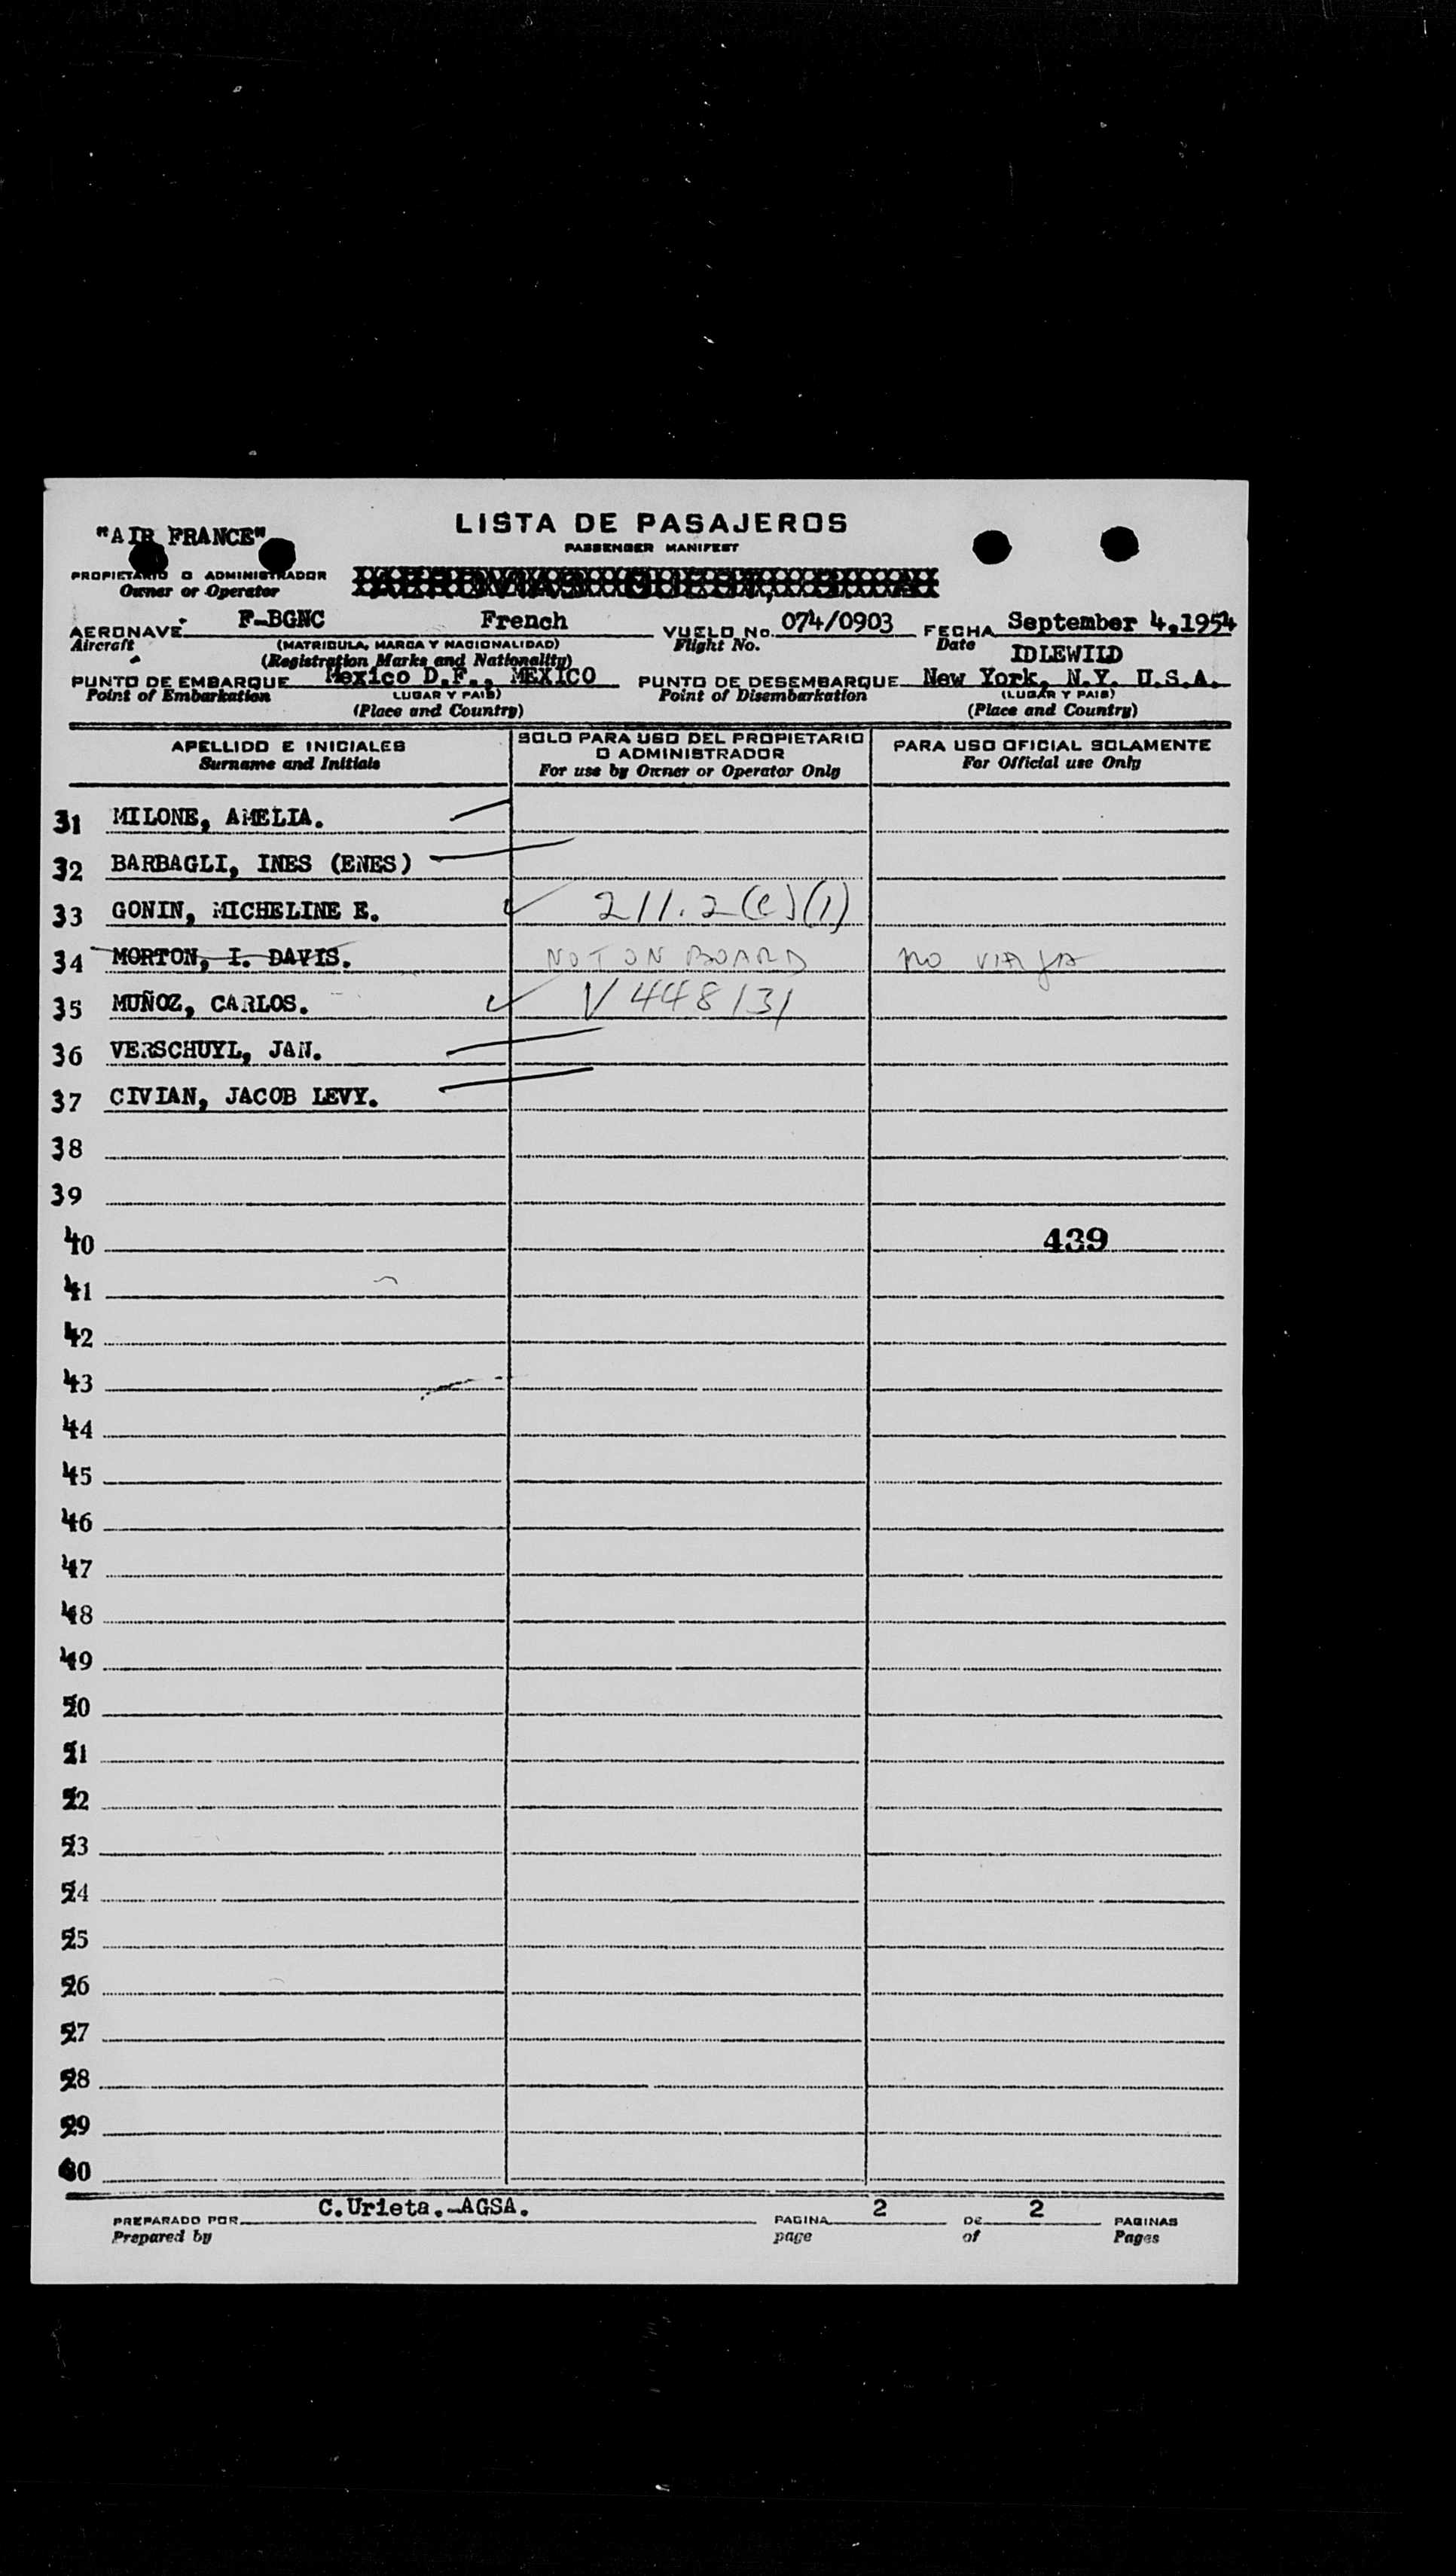 LISTA DE PASAJEROS
PASSENGER MANIFEST
"AIR FRANCE"
PROPIETARIO O ADMINISTRADOR
Owner or Operator
AEROVIAS GUEST, S. A.
AERONAVE F-BGNC French VUELO No. 074/0903 FECHA September 4,1954
Aircraft (MATRICULA, MARCA Y NACIONALIDAD) Flight No. Date
(Registration Marks and Nationality) IDLEWILD
PUNTO DE EMBARQUE Mexico D.F., MEXICO PUNTO DE DESEMBARQUE New York, N.Y. U.S.A.
Point of Embarkation (LUGAR Y PAIS) Point of Disembarkation (LUGAR Y PAIS)
(Place and Country) (Place and Country)
APELLIDO E INICIALES SOLO PARA USO DEL PROPIETARIO O ADMINISTRADOR PARA USO OFICIAL SOLAMENTE
Surname and Initials For use by Owner or Operator Only For Official use Only
31 MILONE, AMELIA.
32 BARBAGLI, INES (ENES)
33 GONIN, MICHELINE E. 211.2(e)(1)
34 MORTON, I. DAVIS. NOT ON BOARD no viaja
35 MUÑOZ, CARLOS. V 448131
36 VERSCHUYL, JAN.
37 CIVIAN, JACOB LEVY.
38
39
40 439
41
42
43
44
45
46
47
48
49
50
51
52
53
54
55
56
57
58
59
60
PREPARADO POR C.Urieta.-AGSA. PAGINA 2 DE 2 PAGINAS
Prepared by page of Pages